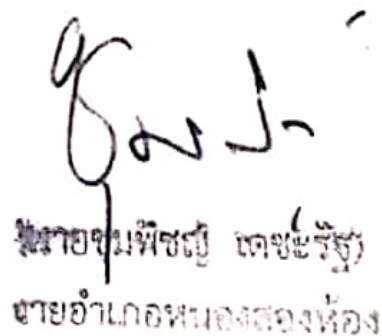 (นายชุมพิชญ์ เดชะรัฐ)
นายอำเภอหนองสองห้อง